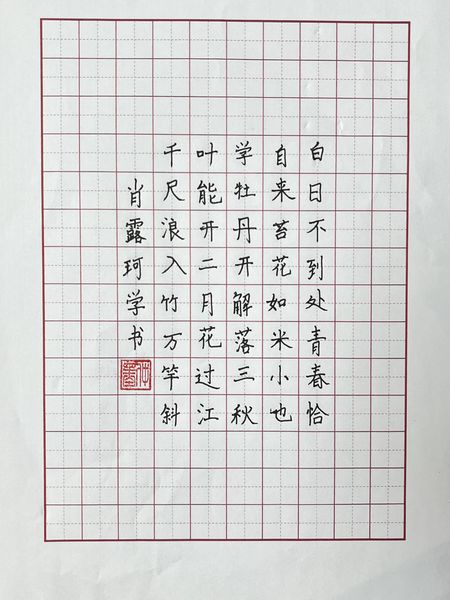 白日不到处青春恰
自来苔花如米小也
学牡丹开解落三秋
叶能开二月花过江
千尺浪入竹万竿斜
肖露珂学书